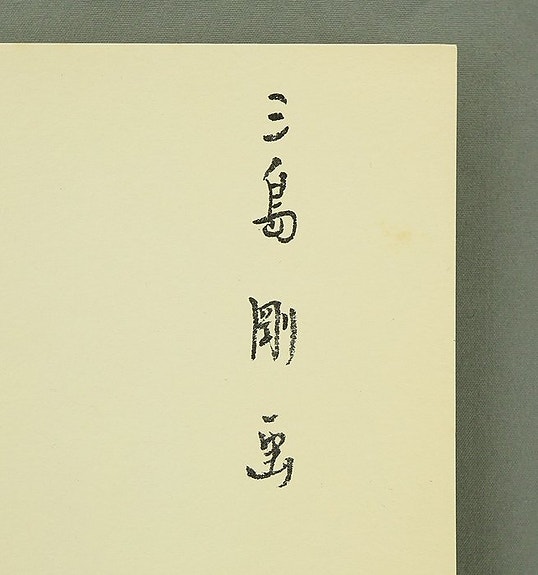 三島剛画